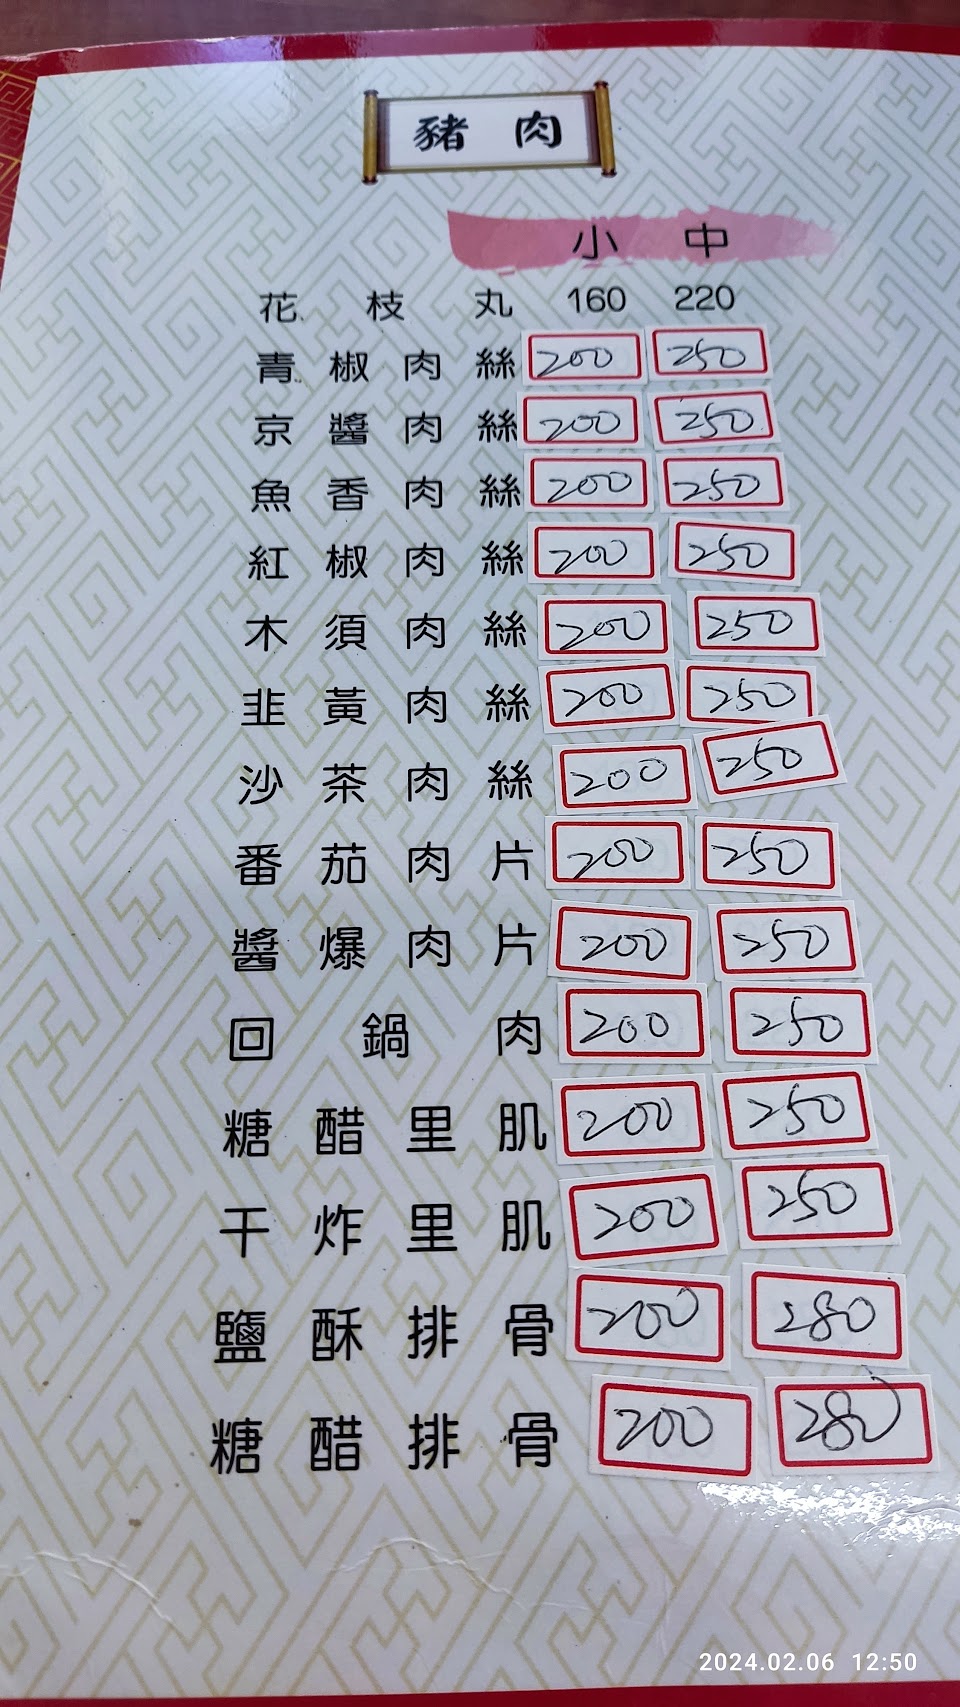 豬肉
小 中
花枝丸 160 220
青椒肉絲 200 250
京醬肉絲 200 250
魚香肉絲 200 250
紅椒肉絲 200 250
木須肉絲 200 250
韭黃肉絲 200 250
沙茶肉絲 200 250
番茄肉片 200 250
醬爆肉片 200 250
回鍋肉 200 250
糖醋里肌 200 250
干炸里肌 200 250
鹽酥排骨 200 280
糖醋排骨 200 280
2024.02.06 12:50